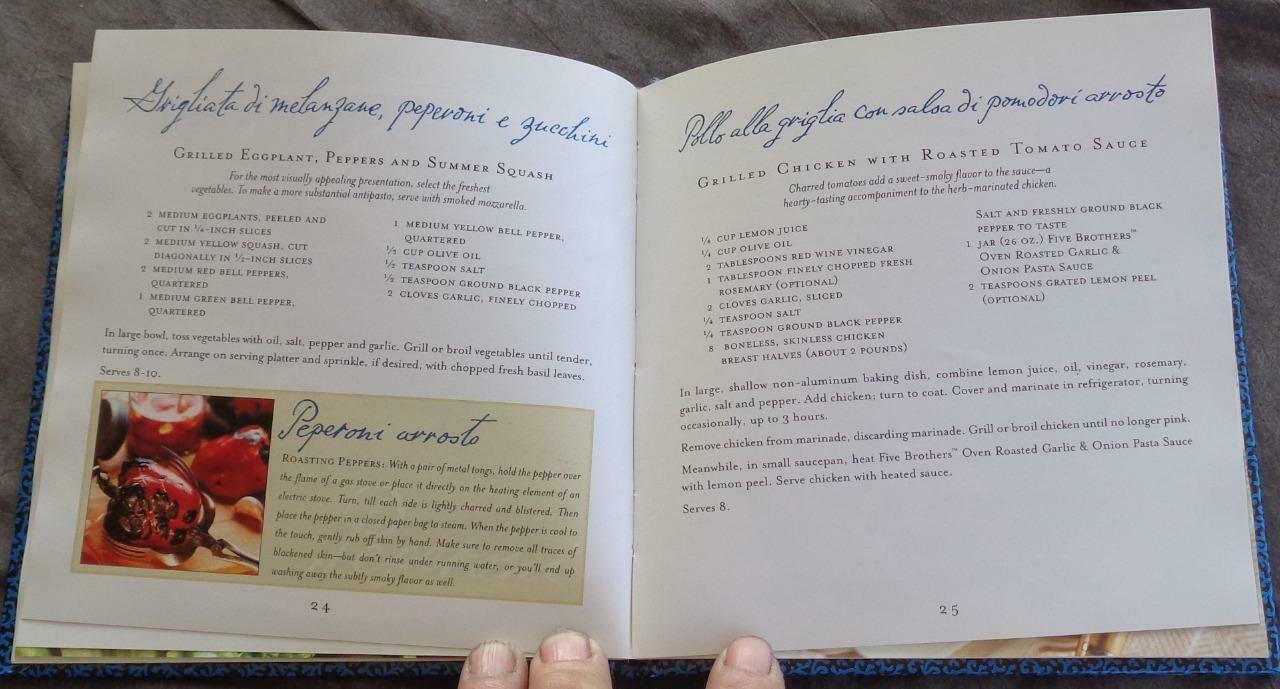 Grigliata di melanzane, peperoni e zucchini
Grilled Eggplant, Peppers and Summer Squash
For the most visually appealing presentation, select the freshest
vegetables. To make a more substantial antipasto, serve with smoked mozzarella.
2 medium eggplants, peeled and
cut in ¼-inch slices
2 medium yellow squash, cut
diagonally in ½-inch slices
2 medium red bell peppers,
quartered
1 medium green bell pepper,
quartered
1 medium yellow bell pepper,
quartered
⅓ cup olive oil
½ teaspoon salt
½ teaspoon ground black pepper
2 cloves garlic, finely chopped
In large bowl, toss vegetables with oil, salt, pepper and garlic. Grill or broil vegetables until tender,
turning once. Arrange on serving platter and sprinkle, if desired, with chopped fresh basil leaves.
Serves 8-10.
Peperoni arrosto
Roasting Peppers: With a pair of metal tongs, hold the pepper over
the flame of a gas stove or place it directly on the heating element of an
electric stove. Turn, till each side is lightly charred and blistered. Then
place the pepper in a closed paper bag to steam. When the pepper is cool to
the touch, gently rub off skin by hand. Make sure to remove all traces of
blackened skin—but don't rinse under running water, or you'll end up
washing away the subtly smoky flavor as well.
24
Pollo alla griglia con salsa di pomodori arrosto
Grilled Chicken with Roasted Tomato Sauce
Charred tomatoes add a sweet-smoky flavor to the sauce—a
hearty-tasting accompaniment to the herb-marinated chicken.
¼ cup lemon juice
¼ cup olive oil
2 tablespoons red wine vinegar
1 tablespoon finely chopped fresh
rosemary (optional)
2 cloves garlic, sliced
¼ teaspoon salt
¼ teaspoon ground black pepper
8 boneless, skinless chicken
breast halves (about 2 pounds)
Salt and freshly ground black
pepper to taste
1 jar (26 oz.) Five Brothers™
Oven Roasted Garlic &
Onion Pasta Sauce
2 teaspoons grated lemon peel
(optional)
In large, shallow non-aluminum baking dish, combine lemon juice, oil, vinegar, rosemary,
garlic, salt and pepper. Add chicken; turn to coat. Cover and marinate in refrigerator, turning
occasionally, up to 3 hours.
Remove chicken from marinade, discarding marinade. Grill or broil chicken until no longer pink.
Meanwhile, in small saucepan, heat Five Brothers™ Oven Roasted Garlic & Onion Pasta Sauce
with lemon peel. Serve chicken with heated sauce.
Serves 8.
25